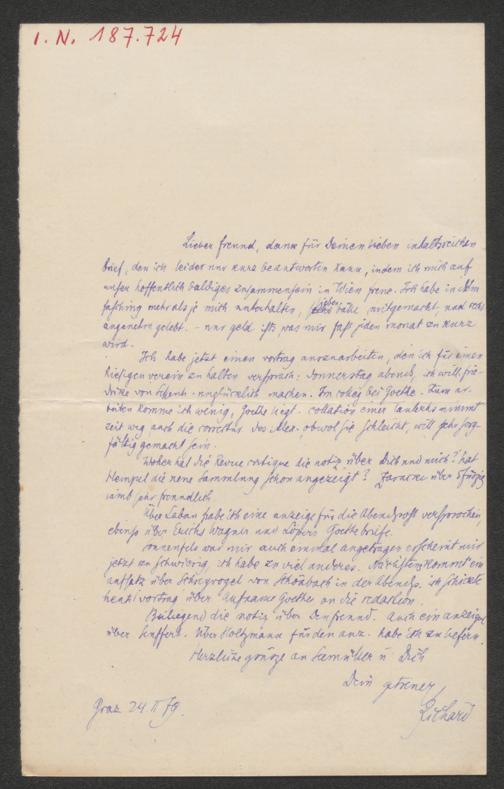 I. N. 187.724
Lieber freund, danke für Deinen lieben inhaltsreichen
brief, den ich leider nur kurz beantworten kann, indem ich mich auf
unser hoffentlich baldiges zusammensein in Wien freue. Ich habe in dem
fasching mehr als je mich unterhalten, bälle mitgemacht, und recht
angenehm gelebt. - nur geld ists, was mir fast jeden monat zu kurz
wird.
Ich habe jetzt einen vortrag auszuarbeiten, den ich für einen
hiesigen verein zu halten versprach: Donnerstag abends, ich will
machen. bei Goethe. Zum ar-
beiten komme ich wenig, Goethe liegt. collation eines nimmt
zeit weg auch die correctur des Alex. obwol sie schleicht, will sehr sorg-
fältig gemacht sein.
Woher hat die Revue critique die notiz über Dich und mich? hat
Hempel die neue Sammlung schon angezeigt? Zarncke über
sehr freundlich
Über Laban habe ich eine anzeige für die Abendpost versprochen,
ebenso über Erichs Wagner und Löpers Goethebriefe.
Sonnenfels war mir auch einmal angetragen erscheint mir
jetzt zu schwierig. ich habe zu viel anderes. Nächstens kommt ein
aufsatz über Schreyvogel von Schönbach in der Abendp. ich schickte
heut vortrag über Goethes an die redaktion.
Beiliegend die notiz über Denfreund. Auch ein anzeige
über Seuffert. Über Holtzmann für den anz. habe ich zu liefern.
Herzliche grüsze an u. Dich
Dein getreuer
Richard
Graz 24 II 79